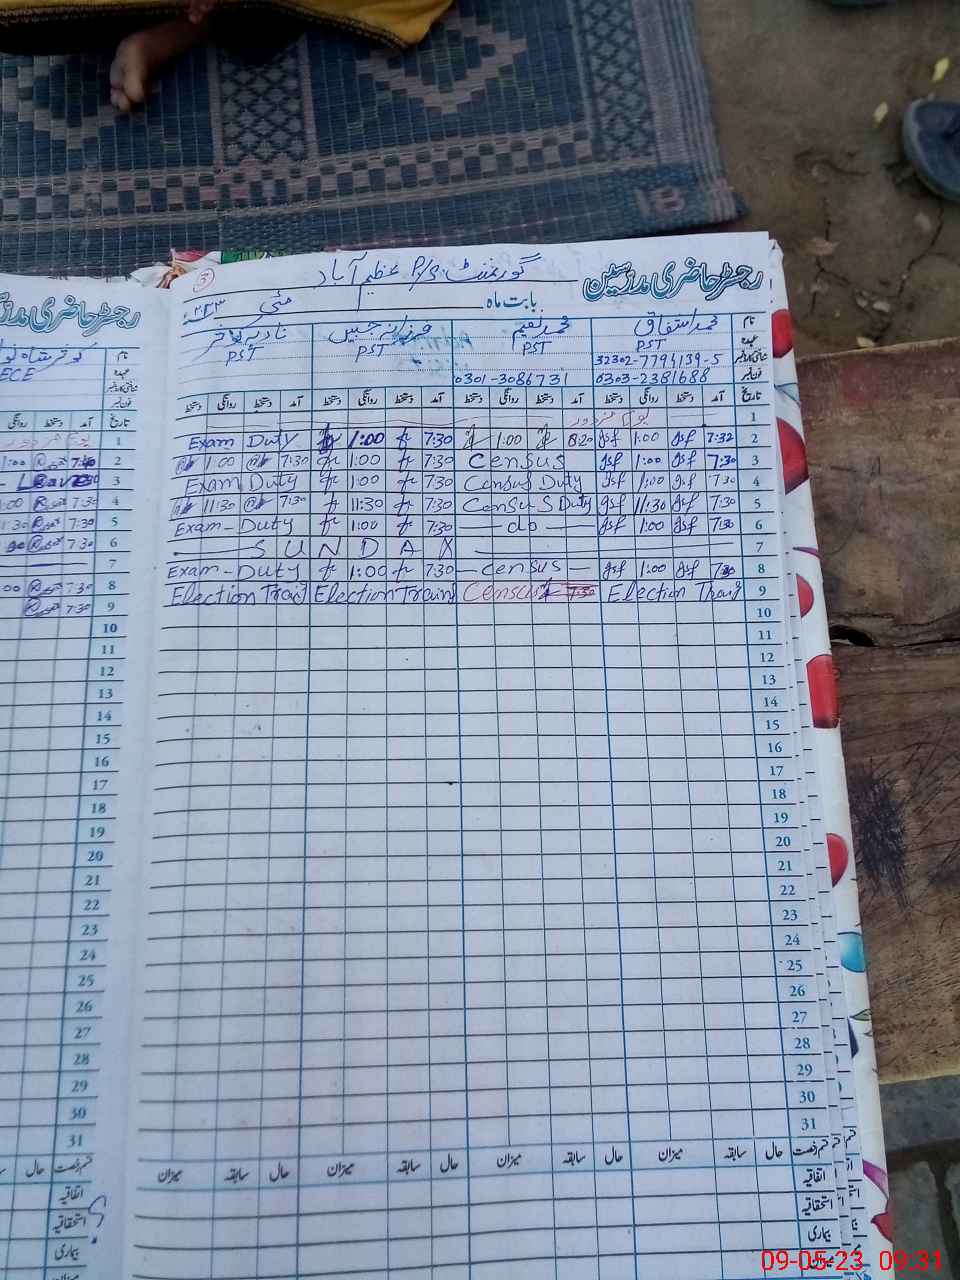 3
گورنمنٹ P/S عظیم آباد
رجسٹر حاضری مدرسین
بابت ماہ مئی ۲۰۲۳ء
نام محمد اشفاق محمد نعیم فرزانہ جبیں نادیہ
عہدہ PST PST PST PST
شناختی کارڈ نمبر 32302-7794139-5
فون نمبر 0303-2381688 0301-3086731
تاریخ آمد دستخط روانگی دستخط آمد دستخط روانگی دستخط آمد دستخط روانگی دستخط آمد دستخط روانگی دستخط
1 یوم مزدور
Exam Duty 1:00 7:30 1:00 8:20 1:00 7:32 2
1:00 7:30 1:00 7:30 Census 1:00 7:30 3
Exam Duty 1:00 7:30 Census Duty 1:00 7:30 4
11:30 7:30 11:30 7:30 Census Duty 11:30 7:30 5
Exam-Duty 1:00 7:30 — do — 1:00 7:30 6
SUNDAY 7
Exam-Duty 1:00 7:30 — census — 1:00 7:30 8
Election Train Election Train Census 7:30 Election 9
10
11
12
13
14
15
16
17
18
19
20
21
22
23
24
25
26
27
28
29
30
31
قسم رخصت حال سابقہ میزان حال سابقہ میزان حال سابقہ میزان حال سابقہ میزان
اتفاقیہ
استحقاقیہ
بیماری
میزان
رجسٹر حاضری مدرسین
نام
ECE عہدہ
شناختی کارڈ نمبر
فون نمبر
تاریخ آمد دستخط روانگی
1
1:00 7:30 2
Leave 3
7:30 4
7:30 5
7:30 6
7
7:30 8
7:30 9
10
11
12
13
14
15
16
17
18
19
20
21
22
23
24
25
26
27
28
29
30
31
قسم رخصت حال
اتفاقیہ
استحقاقیہ
بیماری
میزان
09-05-23 09:31